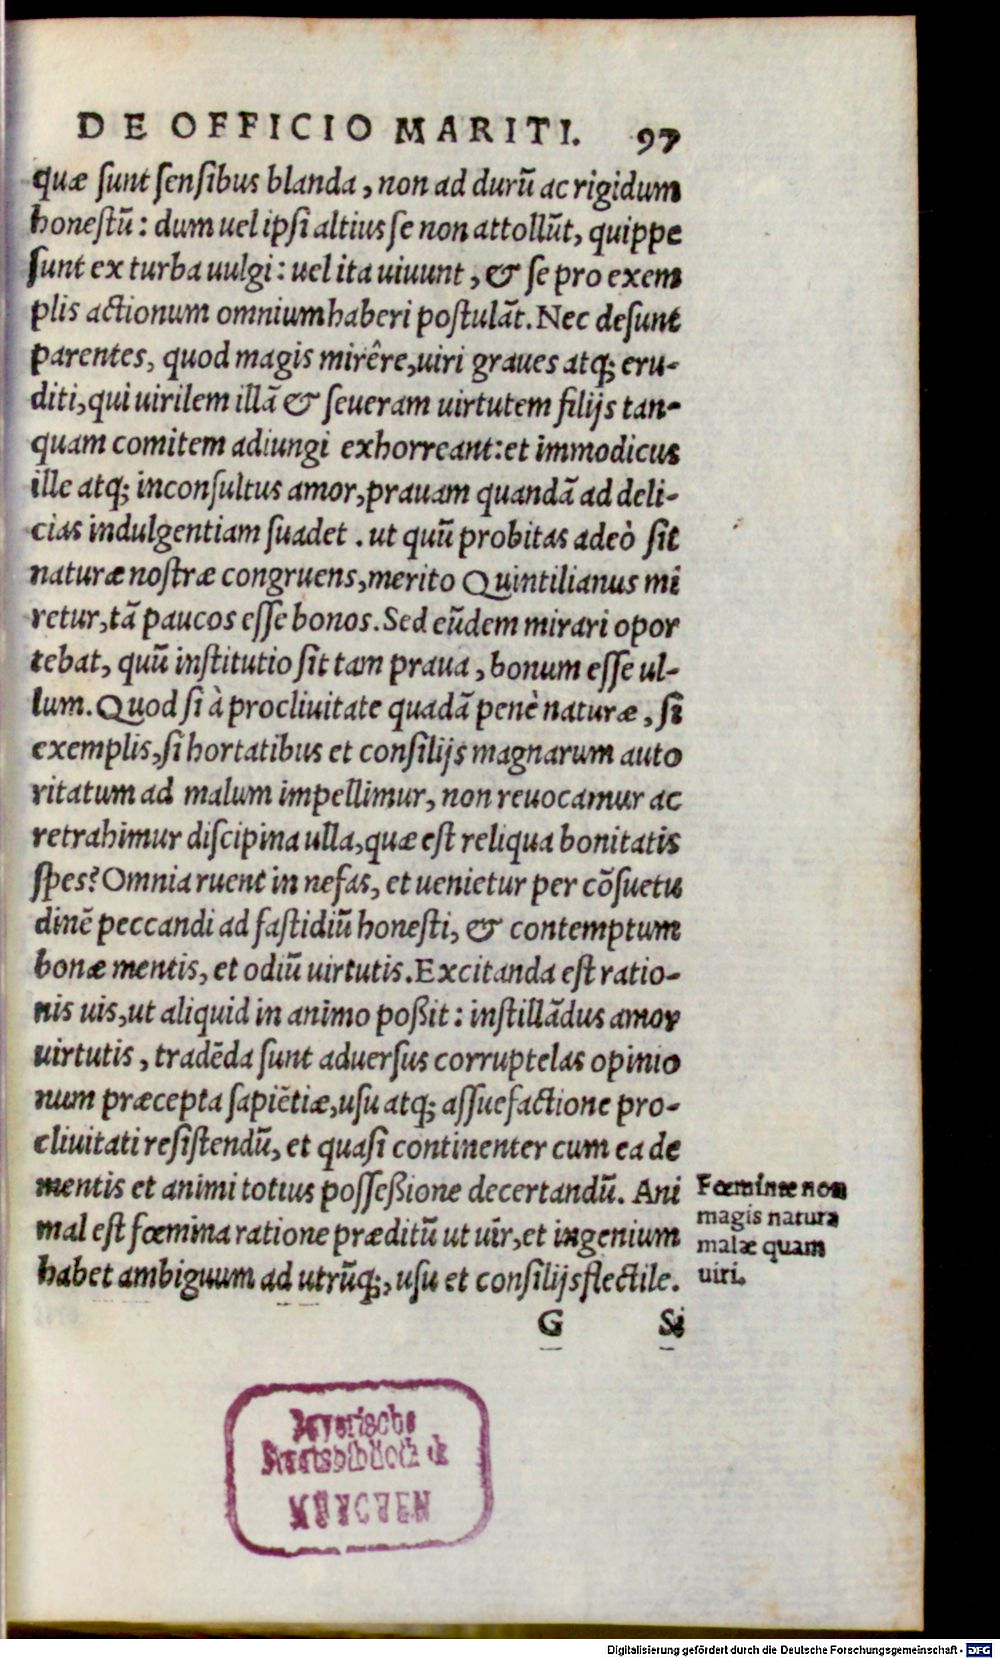 DE OFFICIO MARITI. 97
quæ ſunt ſenſibus blanda, non ad durũ ac rigidum
honeſtũ: dum uel ipſi altius ſe non attollũt, quippe
ſunt ex turba uulgi: uel ita uiuunt, & ſe pro exem
plis actionum omnium haberi poſtulãt. Nec deſunt
parentes, quod magis mirêre, uiri graues atq; eru-
diti, qui uirilem illã & ſeueram uirtutem filijs tan-
quam comitem adiungi exhorreant: et immodicus
ille atq; inconſultus amor, prauam quandã ad deli-
cias indulgentiam ſuadet. ut quũ probitas adeò ſit
naturæ noſtræ congruens, merito Quintilianus mi
retur, tã paucos eſſe bonos. Sed eũdem mirari opor
tebat, quũ inſtitutio ſit tam praua, bonum eſſe ul-
lum. Quod ſi à procliuitate quadã penè naturæ, ſi
exemplis, ſi hortatibus et conſilijs magnarum auto
ritatum ad malum impellimur, non reuocamur ac
retrahimur diſcipina ulla, quæ eſt reliqua bonitatis
ſpes? Omnia ruent in nefas, et uenietur per cõſuetu
dinẽ peccandi ad faſtidiũ honeſti, & contemptum
bonæ mentis, et odiũ uirtutis. Excitanda eſt ratio-
nis uis, ut aliquid in animo poßit: inſtillãdus amor
uirtutis, tradẽda ſunt aduerſus corruptelas opinio
num præcepta ſapiẽtiæ, uſu atq; aſſuefactione pro-
cliuitati reſiſtendũ, et quaſi continenter cum ea de
mentis et animi totius poſſeßione decertandũ. Ani
mal eſt fœmina ratione præditũ ut uir, et ingenium
habet ambiguum ad utrũq;, uſu et conſilijs flectile.
Fœminæ non
magis natura
malæ quam
uiri.
G Si
Bayerische
Staatsbibliothek
MÜNCHEN
Digitalisierung gefördert durch die Deutsche Forschungsgemeinschaft - DFG